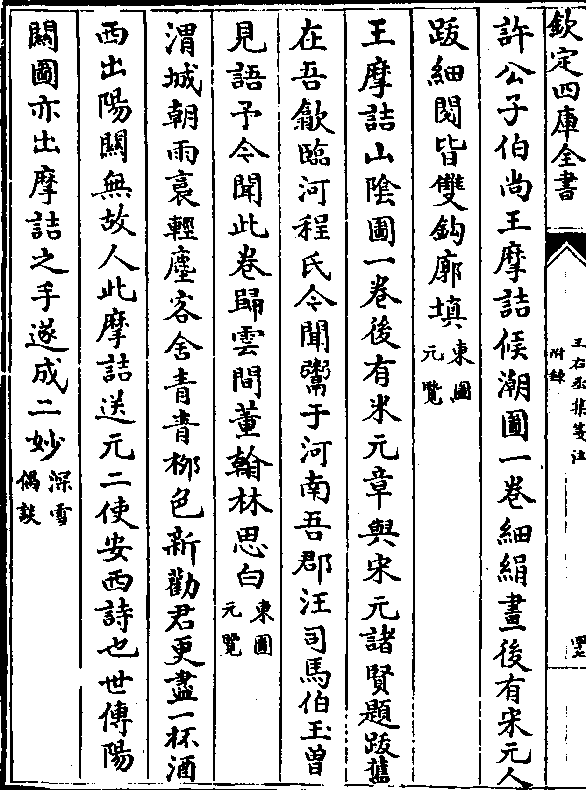 欽定四庫全書
王右丞集箋注
附錄
許公子伯尚王摩詰候潮圖一卷細絹畫後有宋元人
跋細閱皆雙鈎廓填東圖
元覽
王摩詰山陰圖一卷後有米元章與宋元諸賢題跋舊
在吾歙臨河程氏今聞鬻于河南吾郡汪司馬伯玉曽
見語予今聞此卷歸雲間董翰林思白東圖
元覽
渭城朝雨裛輕塵客舍青青栁色新勸君更盡一杯酒
西出陽關無故人此摩詰送元二使安西詩也世傳陽
闗圖亦出摩詰之手遂成二妙深雪
偶談